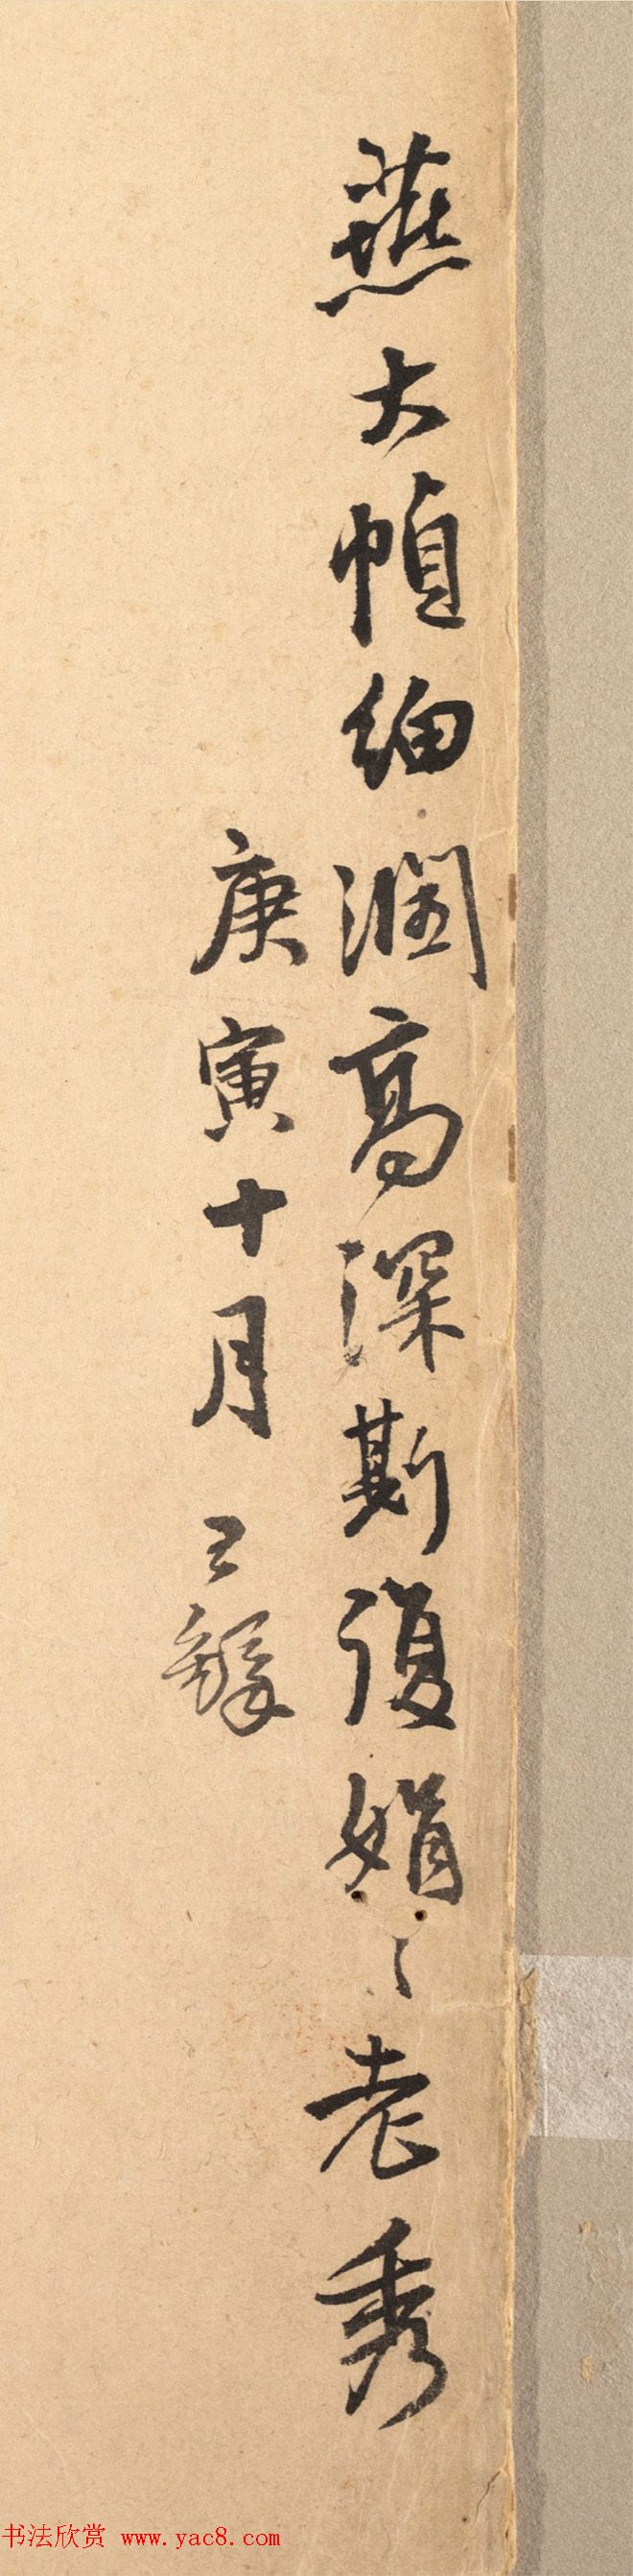 燕大幀細潤高深斯復娟々老秀
庚寅十月 王鐸
书法欣赏 www.yac8.com